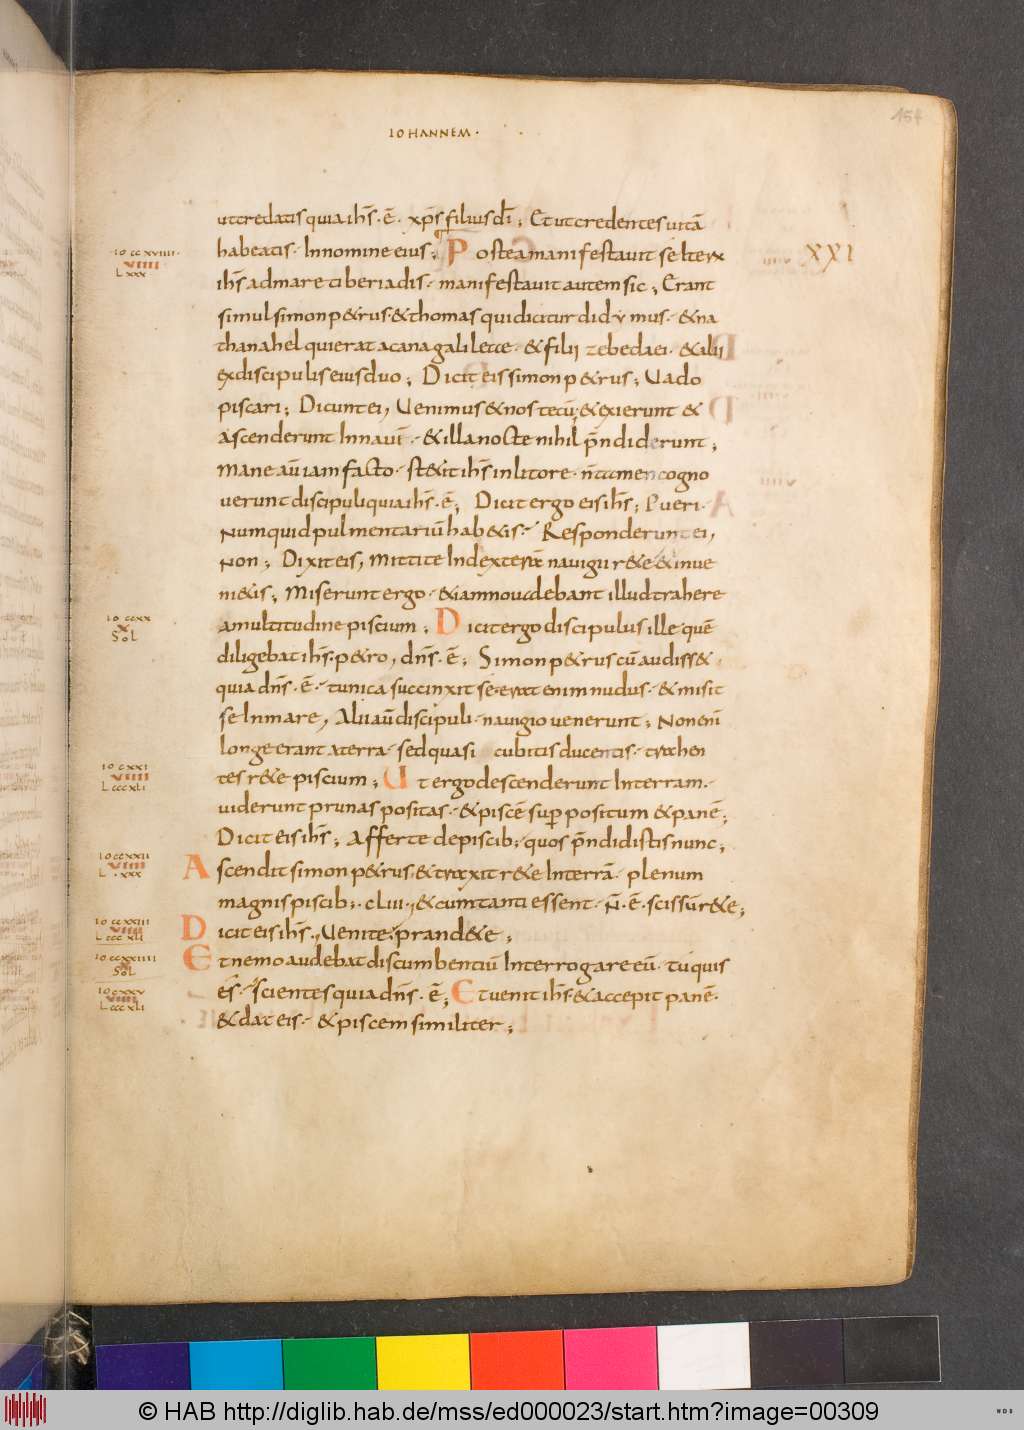 154
IOHANNEM ·
ut credatis quia ihs · ē · xps filius dī ; Et ut credentes uitā
habeatis · In nomine eius ; Postea manifestauit se Iterum
· IO CCXVIIII ·
VIIII
LXXX
XXI
ihs ad mare tiberiadis · manifestauit autem sic ; Erant
simul simon petrus · & thomas qui dicitur didymus · & na
thanahel qui erat a cana galileae · & filii zebedaei · & alii
ex discipulis eius duo ; Dicit eis simon p&rus ; Uado
piscari ; Dicunt ei, Uenimus & nos tecū ; & exierunt &
ascenderunt In nauī · & illa nocte nihil p̄ndiderunt ;
Mane aū iam facto · st&it ihs in litore · n̄ tamen cogno
uerunt discipuli quia ihs · ē ; Dicit ergo eis ihs ; Pueri ·
Numquid pulmentariū hab&is · Responderunt ei,
Non ; Dixit eis, Mittite In dexterā nauigii r&e & inue
ni&is ; Miserunt ergo · & iam non ualebant illud trahere
a multitudine piscium ; Dicit ergo discipulus ille quē
IO CCXX
X
SOL
diligebat ihs · p&ro, dns · ē ; Simon p&rus cū audiss& ·
quia dns · ē · tunica succinxit se · erat enim nudus · & misit
se In mare, Alii aū discipuli · nauigio uenerunt ; Non enī
longe erant a terra · sed quasi cubitis ducentis · trahen
tes r&e piscium ; Ut ergo descenderunt In terram ·
IO CXXI
VIIII
LCCCXLI
uiderunt prunas positas · & piscē sup positum & panē ;
Dicit eis ihs ; Afferte de piscib; · quos p̄ndidistis nunc ;
Ascendit simon p&rus · & traxit r&e In terrā · plenum
IO CCXXII
VIIII
L · XXX
magnis piscib; · cliii · & cum tanti essent · n̄ · ē · scissū r&e ;
Dicit eis ihs · Uenite, prand&e ;
IO CCXXIII
VIIII
LCCCXLI
Et nemo audebat discumbentiū Interrogare eū · tu quis
IO CCXXIIII
X
SOL
es · scientes quia dns · ē ; Et uenit ihs & accepit panē ·
IO CCXXV
VIIII
LCCCXLI
& dat eis · & piscem similiter ;
© HAB http://diglib.hab.de/mss/ed000023/start.htm?image=00309
WDB